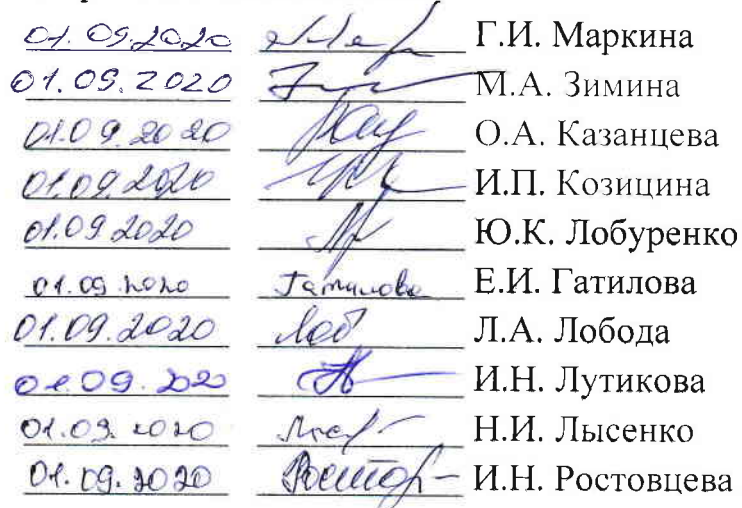 01.09.2020 Г.И. Маркина
01.09.2020 М.А. Зимина
01.09.2020 О.А. Казанцева
01.09.2020 И.П. Козицина
01.09.2020 Ю.К. Лобуренко
01.09.2020 Гатилова Е.И. Гатилова
01.09.2020 Лоб Л.А. Лобода
01.09.2020 И.Н. Лутикова
01.09.2020 Н.И. Лысенко
01.09.2020 И.Н. Ростовцева